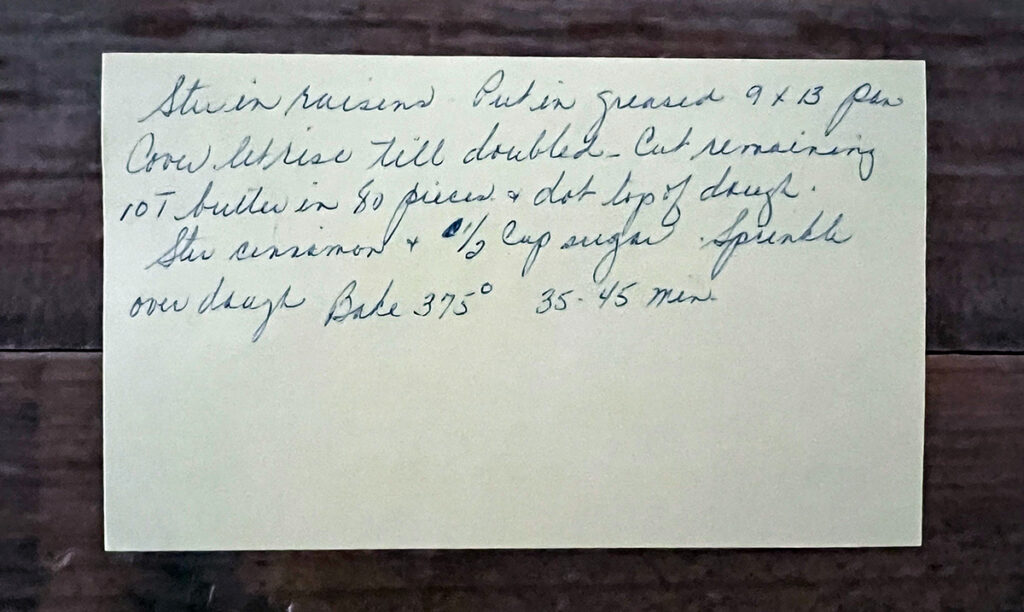 Stir in raisens Put in greased 9 x 13 pan
Cover let rise till doubled - Cut remaining
10 T butter in 80 pieces + dot top of dough.
Stir cinnamon + 1/2 Cup sugar. Sprinkle
over dough Bake 375° 35-45 min.